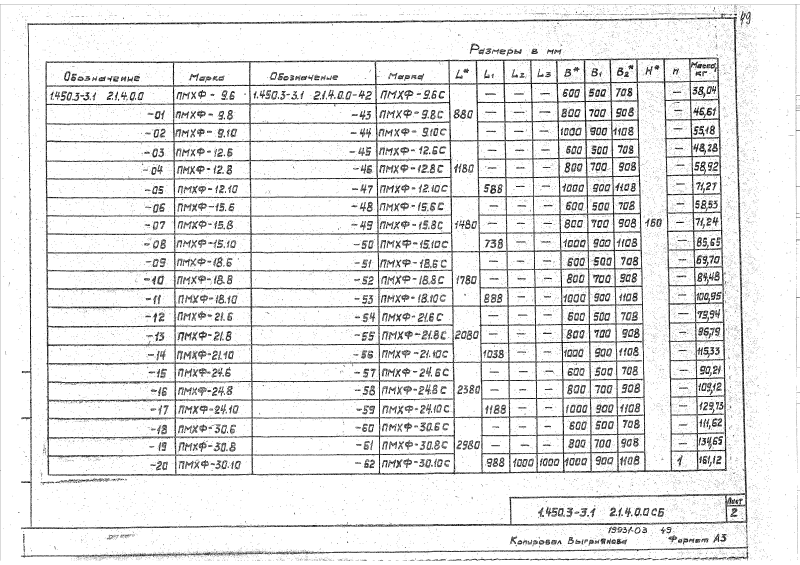 49
Размеры в мм
Обозначение Марка Обозначение Марка L* L1 L2 L3 B* B1 B2* H* n Масса, кг
1.450.3-3.1 2.1.4.0.0 ПМХФ-9.6 1.450.3-3.1 2.1.4.0.0-42 ПМХФ-9.6С — — — 600 500 708 — 38,04
-01 ПМХФ-9.8 -43 ПМХФ-9.8С 880 — — — 800 700 908 — 46,61
-02 ПМХФ-9.10 -44 ПМХФ-9.10С — — — 1000 900 1108 — 55,18
-03 ПМХФ-12.6 -45 ПМХФ-12.6С — — — 600 500 708 — 48,28
-04 ПМХФ-12.8 -46 ПМХФ-12.8С 1180 — — — 800 700 908 — 58,92
-05 ПМХФ-12.10 -47 ПМХФ-12.10С 588 — — 1000 900 1108 — 71,27
-06 ПМХФ-15.6 -48 ПМХФ-15.6С — — — 600 500 708 — 58,53
-07 ПМХФ-15.8 -49 ПМХФ-15.8С 1480 — — — 800 700 908 160 — 71,24
-08 ПМХФ-15.10 -50 ПМХФ-15.10С 738 — — 1000 900 1108 — 85,65
-09 ПМХФ-18.6 -51 ПМХФ-18.6С — — — 600 500 708 — 69,70
-10 ПМХФ-18.8 -52 ПМХФ-18.8С 1780 — — — 800 700 908 — 84,48
-11 ПМХФ-18.10 -53 ПМХФ-18.10С 888 — — 1000 900 1108 — 100,95
-12 ПМХФ-21.6 -54 ПМХФ-21.6С — — — 600 500 708 — 79,94
-13 ПМХФ-21.8 -55 ПМХФ-21.8С 2080 — — — 800 700 908 — 96,79
-14 ПМХФ-21.10 -56 ПМХФ-21.10С 1038 — — 1000 900 1108 — 115,33
-15 ПМХФ-24.6 -57 ПМХФ-24.6С — — — 600 500 708 — 90,21
-16 ПМХФ-24.8 -58 ПМХФ-24.8С 2380 — — — 800 700 908 — 109,12
-17 ПМХФ-24.10 -59 ПМХФ-24.10С 1188 — — 1000 900 1108 — 129,73
-18 ПМХФ-30.6 -60 ПМХФ-30.6С — — — 600 500 708 — 111,62
-19 ПМХФ-30.8 -61 ПМХФ-30.8С 2980 — — — 800 700 908 — 134,65
-20 ПМХФ-30.10 -62 ПМХФ-30.10С 988 1000 1000 1000 900 1108 1 161,12
1.450.3-3.1 2.1.4.0.0СБ Лист 2
19931-03 49
Копировал Выгриянова Формат А3